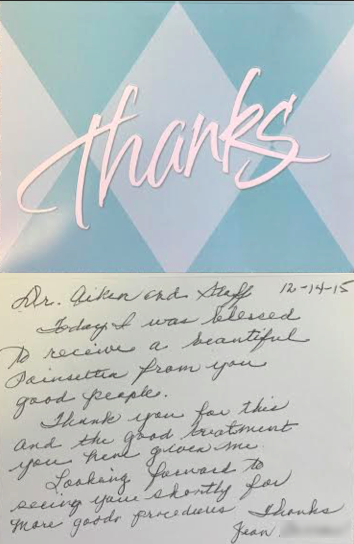 Thanks
Dr. Aiken and Staff 12-14-15
Today I was blessed
to receive a beautiful
Poinsettia from you
good people.
Thank you for this
and the good treatment
you have given me.
Looking forward to
seeing you shortly for
more good procedures Thanks
Jean